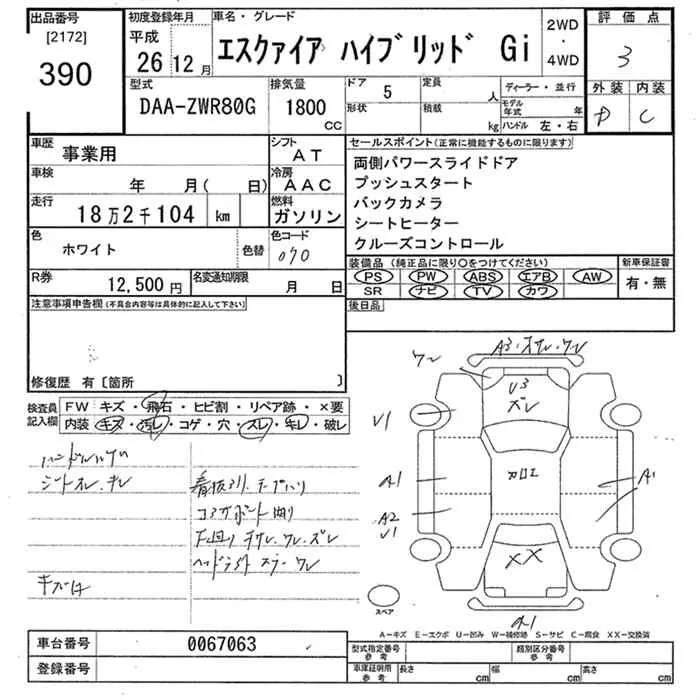 出品番号 [2172] 390
初度登録年月 平成 26年 12月
車名・グレード エスクァイア ハイブリッド Gi
2WD・4WD
評価点 3
外装 D 内装 C
型式 DAA-ZWR80G
排気量 1800 CC
ドア 5
形状
定員 人
積載 kg
ディーラー・並行
モデル年式 年
ハンドル 左・右
車歴 事業用
シフト AT
車検 年 月( 日)
冷房 AAC
走行 18万2千104 km
燃料 ガソリン
色 ホワイト
色替
色コード 070
R券 12,500円
名変通知期限 月 日
セールスポイント(正常に機能するものに限ります)
両側パワースライドドア
プッシュスタート
バックカメラ
シートヒーター
クルーズコントロール
装備品 (純正品に限り○をつけてください)
PS PW ABS エアB AW
SR ナビ TV カワ
新車保証書 有・無
後日品
注意事項申告欄(不具合内容等は具体的に記入して下さい)
修復歴 有〔箇所 〕
検査員記入欄
FW キズ・飛石・ヒビ割・リペア跡・×要
内装 キズ・汚レ・コゲ・穴・スレ・キレ・破レ
シートスレ、キレ
キズ
ワレ
A3
U3
ズレ
U1
A1
A2
U1
A1
XX
A1
スペア
A−キズ E−エクボ U−凹み W−補修跡 S−サビ C−腐食 XX−交換済
車台番号 0067063
登録番号
型式指定番号 参考
類別区分番号 参考
車庫証明用 参考 長さ cm 幅 cm 高さ cm